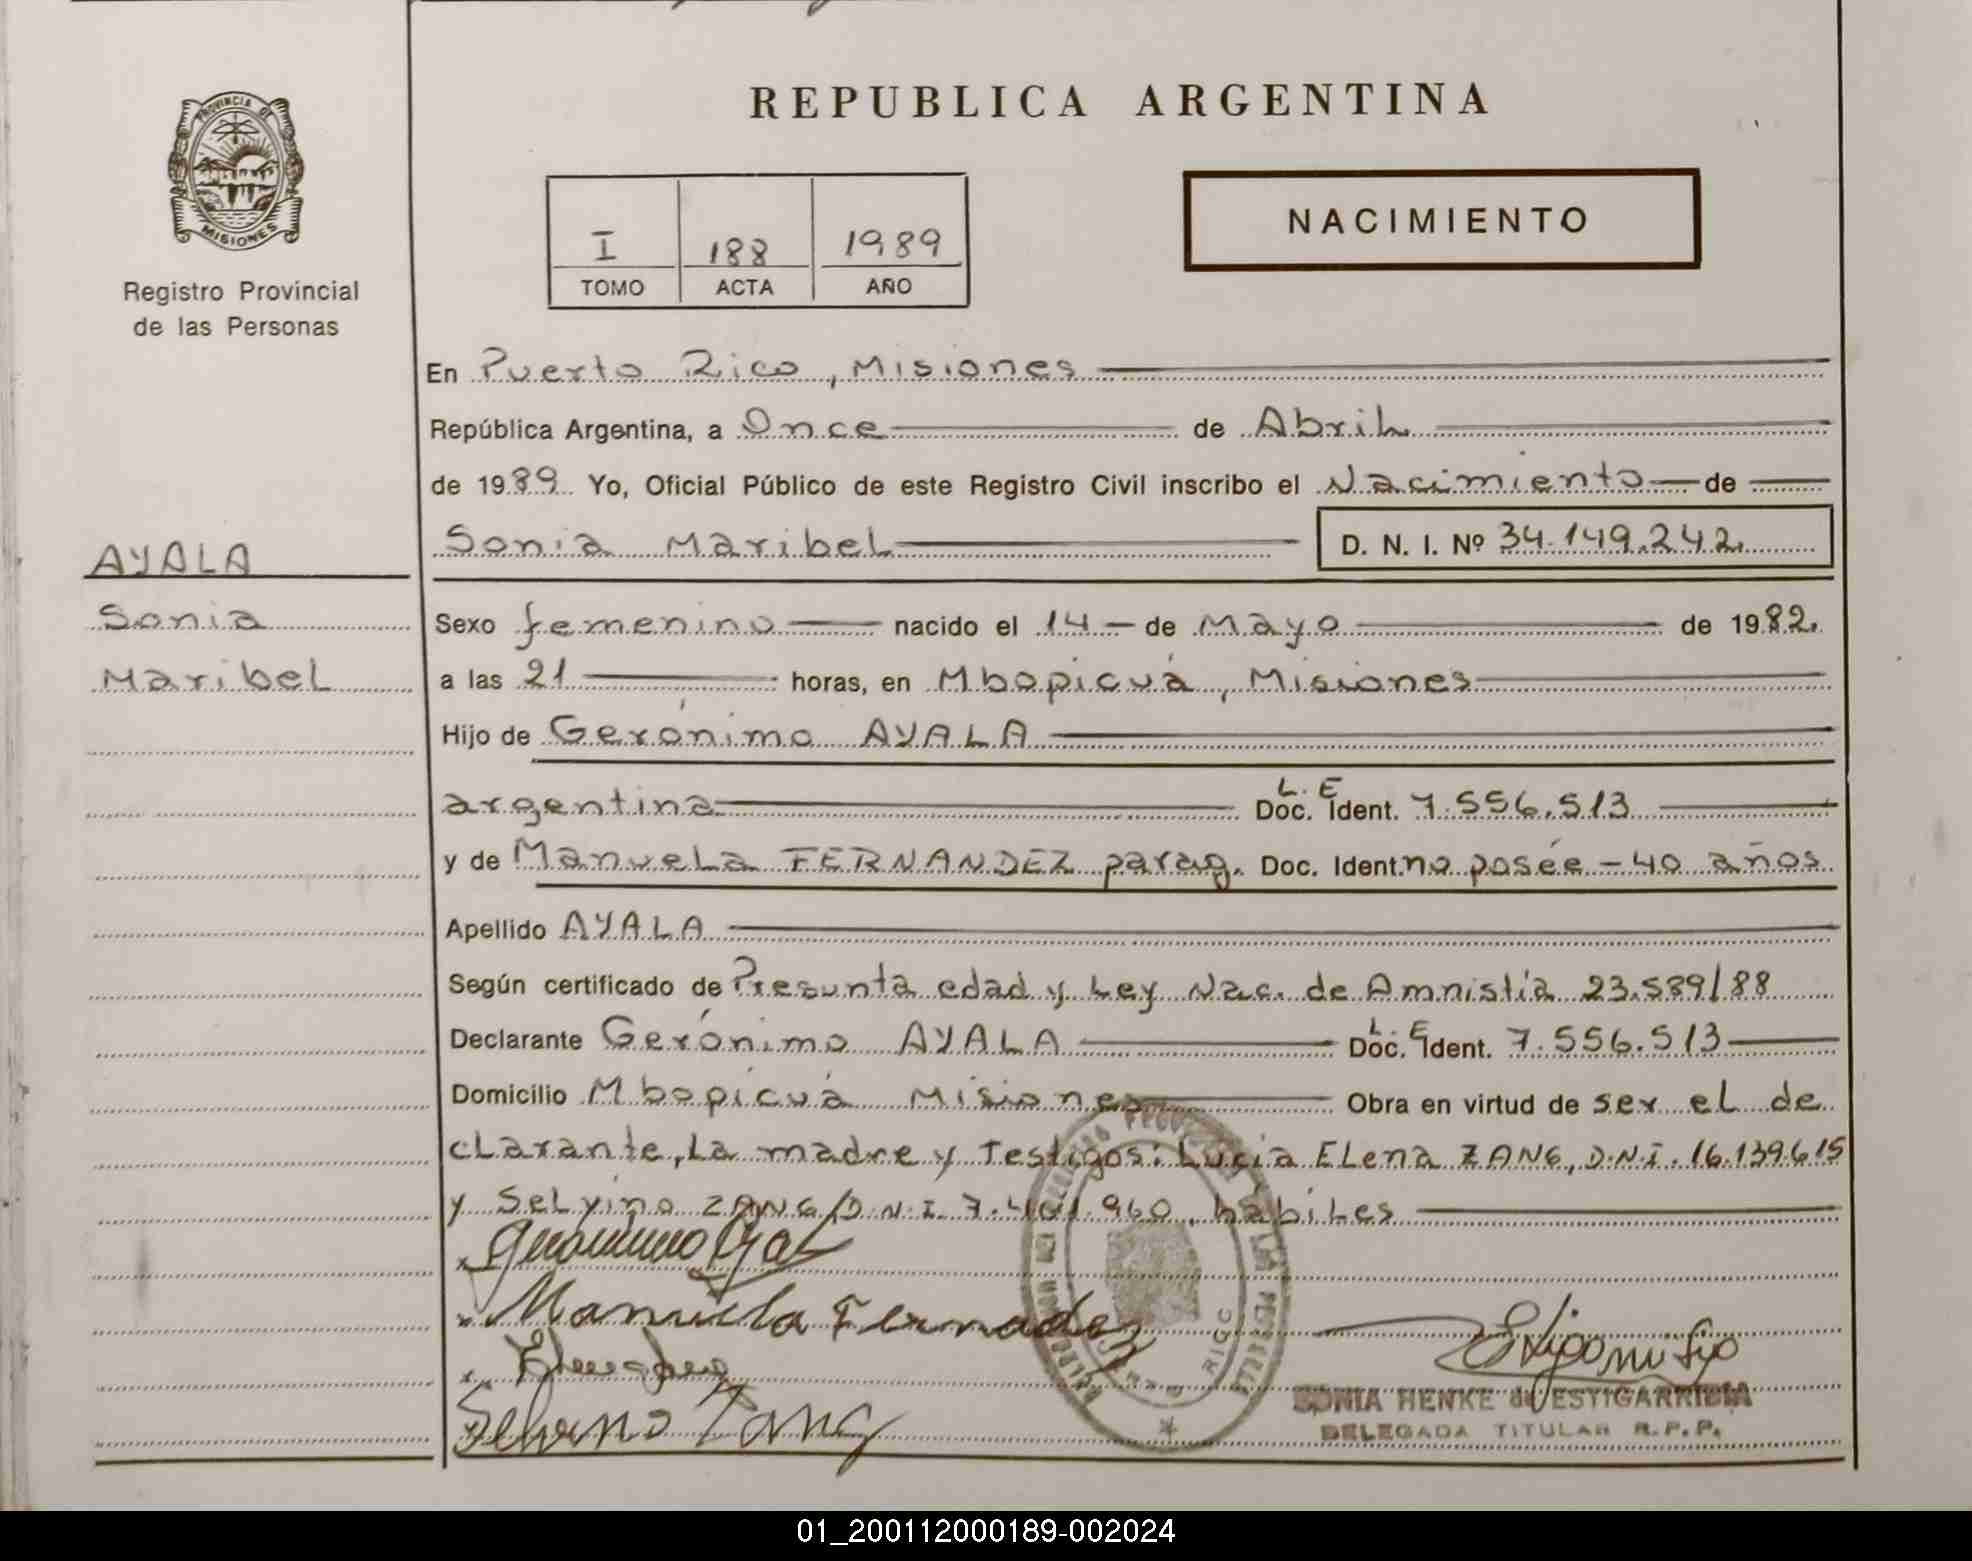 REPUBLICA ARGENTINA
PROVINCIA DE
MISIONES
Registro Provincial
de las Personas
I 188 1989
TOMO ACTA AÑO
NACIMIENTO
En Puerto Rico, Misiones
República Argentina, a Once de Abril
de 1989 Yo, Oficial Público de este Registro Civil inscribo el Nacimiento de
Sonia Maribel D. N. I. Nº 34.149.242
AYALA
Sonia
Maribel
Sexo femenino nacido el 14 de Mayo de 1982.
a las 21 horas, en Mbopicuá, Misiones
Hijo de Gerónimo AYALA
argentina L.E Doc. Ident. 7.556.513
y de Manuela FERNANDEZ parag. Doc. Ident. no posée - 40 años
Apellido AYALA
Según certificado de Presunta edad y Ley Nac. de Amnistía 23.539/88
Declarante Gerónimo AYALA L.E Doc. Ident. 7.556.513
Domicilio Mbopicuá Misiones Obra en virtud de ser el de
clarante, La madre y Testigos: Lucia Elena ZANG, D.N.I. 16.139.615
y Selvino ZANG D.N.I 7.401.960, hábiles
Manuela Fernadez
Selvino Zang
SONIA HENKE de ESTIGARRIBIA
DELEGADA TITULAR R.P.P.
01_200112000189-002024